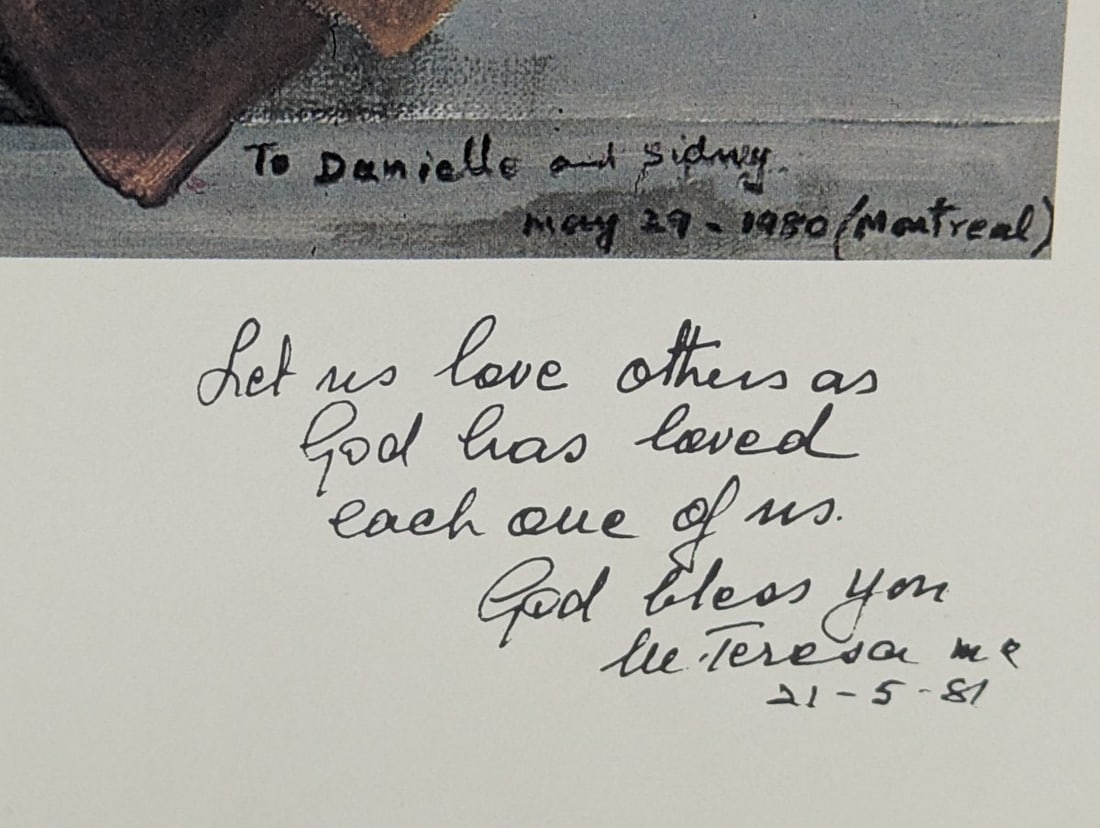 To Danielle and Sidney
may 29 - 1980 (Montreal)
Let us love others as
God has loved
each one of us.
God bless you
M. Teresa mc
21-5-81